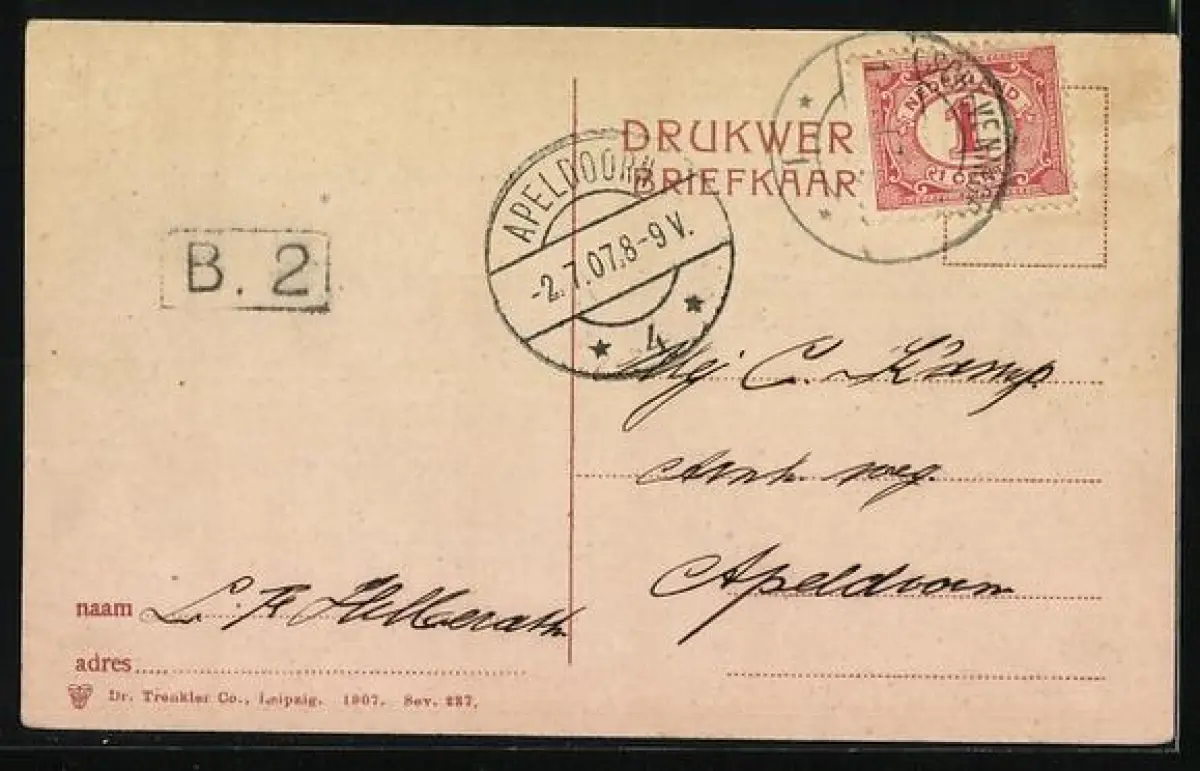 DRUKWER
BRIEFKAAR
NEDERLAND
1
1 CENT
APELDOORN
-2.7.07.8-9V.
4
B. 2
Mej C. Kamp
Arnh. weg.
Apeldoorn
naam L. F.
adres
Dr. Trenkler Co., Leipzig. 1907. Sev. 287.